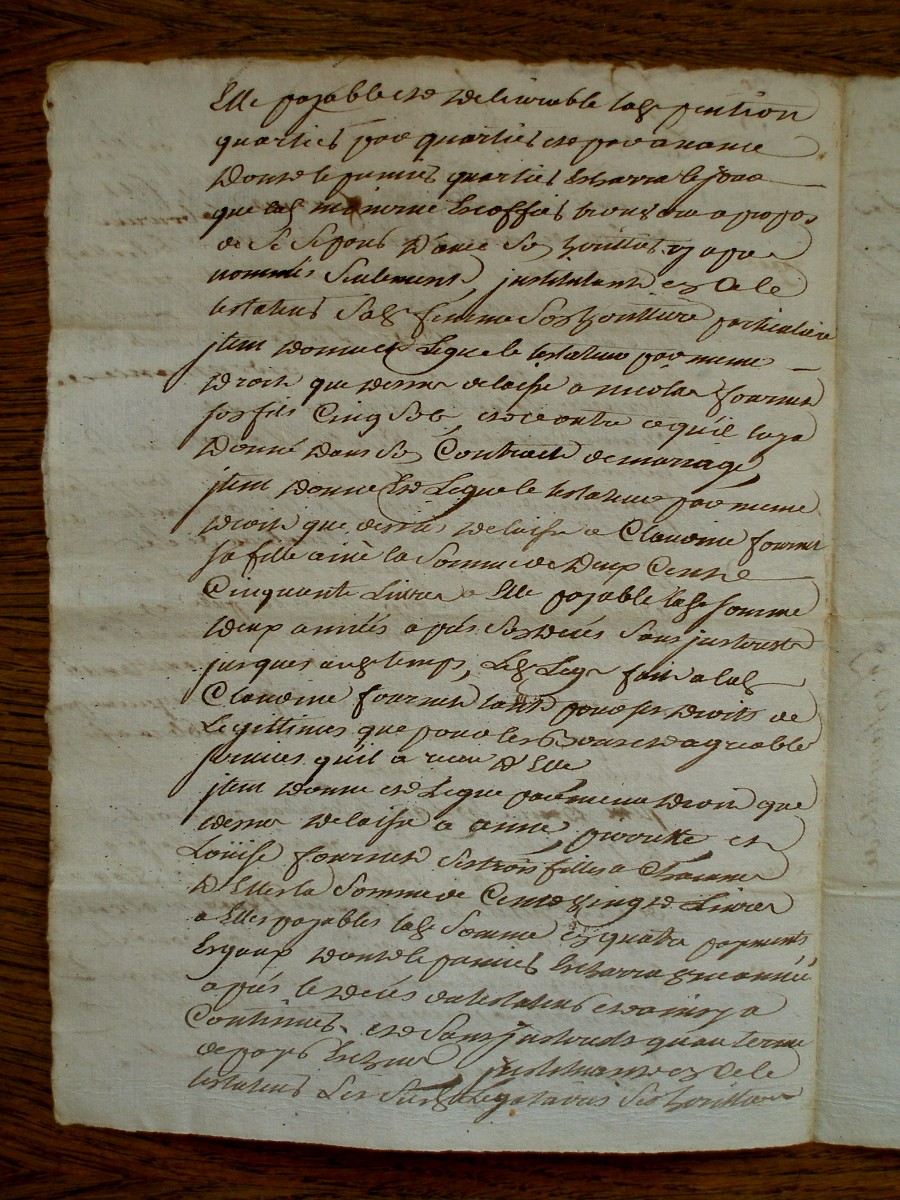 Elle payable et delivrable lad pention
quartier par quartier et par avance
dont le premier quartier Escherra le jour
que lad
de Se Separer d'avec Ses heritiers cy apres
nommés Seulement, justituant en Cele
testateur Sad femme Son heritiere particuliere
jtem donne et Legue le testateur par meme
droit que dessus delaisse a nicolas fournet
son fils Cinq Sols, et ce outre ce qu'il luy a
Donné Dans Son Contract de mariage,
jtem Donne et Legue le testateur par meme
droit que dessus delaisse a Claudine fournet
sa fille ainé la Somme de Deux Cents
Cinquante Livres a Elle payable lad Somme
deux années aprés Son decés Sans justerest
jusques aud temps, Led Legs fait a lad
Claudine fournet tant pour ses droits de
Legittimes que pour les Bons et agreables
services qu'il a receu d'Elle
jtem donne et Legue par meme droit que
dessus delaisse a anne, pierrette et
Loüise fournet Ses trois filles a Chacune
d'Elles la Somme de Cent vingt Livres
a Elles payables lad Somme en quatre payments
Egaux dont le premier Escherra une année
aprés le decés du testateur et ainsy a
Continuer, et Sans justerests qu'au terme
de payes Escheu justituant en Cele
testateur Les Susd Legataires Ses heritieres